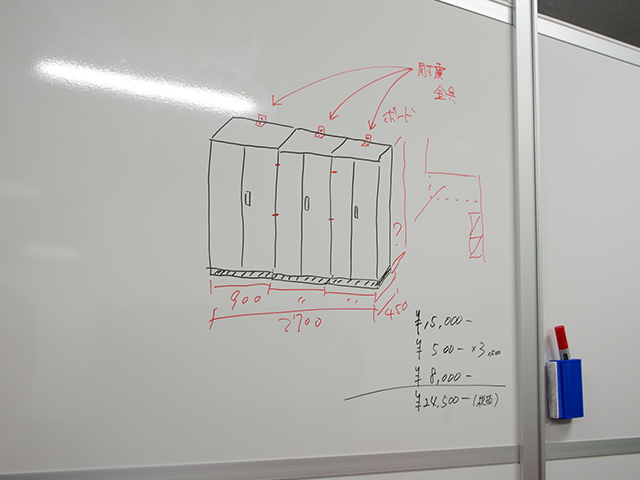 耐震
金具
ボード
?
900 〃 〃
2700
450
¥15,000-
¥ 500- ×3 1,500
¥ 8,000-
¥24,500-(税抜)